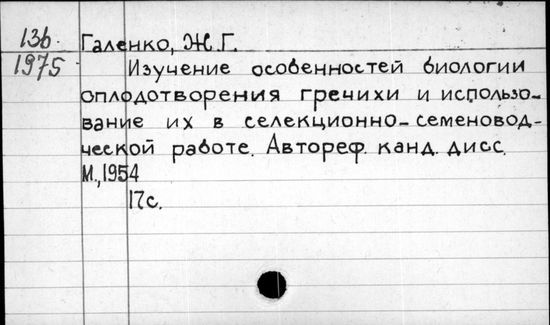 13б. Галенко, Ж.Г.
1975 Изучение особенностей биологии
оплодотворения гречихи и использо-
вание их в селекционно-семеновод-
ческой работе. Автореф. канд. дисс.
М., 1954
17с.